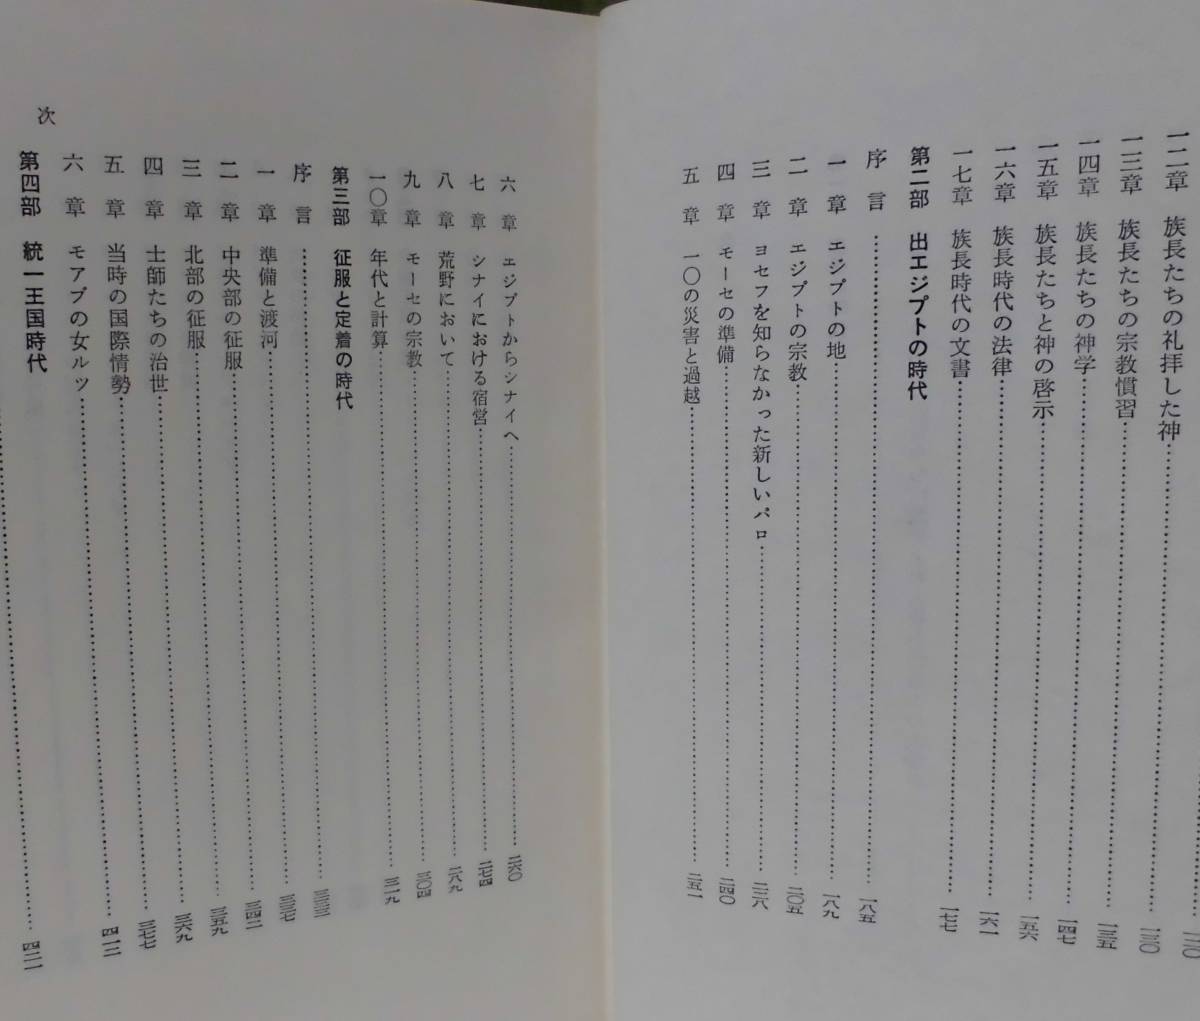 一二〇
一二章 族長たちの礼拝した神……一三〇
一三章 族長たちの宗教慣習……一三五
一四章 族長たちの神学……一四七
一五章 族長たちと神の啓示……一五六
一六章 族長時代の法律……一六一
一七章 族長時代の文書……一七七
第二部 出エジプトの時代
序言……一八五
一章 エジプトの地……一八九
二章 エジプトの宗教……二〇五
三章 ヨセフを知らなかった新しいパロ……二二八
四章 モーセの準備……二四〇
五章 一〇の災害と過越……二五一
六章 エジプトからシナイへ……二六〇
七章 シナイにおける宿営……二七四
八章 荒野において……二八九
九章 モーセの宗教……三〇四
一〇章 年代と計算……三一九
第三部 征服と定着の時代
序言……三三三
一章 準備と渡河……三三七
二章 中央部の征服……三四二
三章 北部の征服……三五九
四章 士師たちの治世……三六九
五章 当時の国際情勢……三七七
六章 モアブの女ルツ……四一二
第四部 統一王国時代
……四二一
次